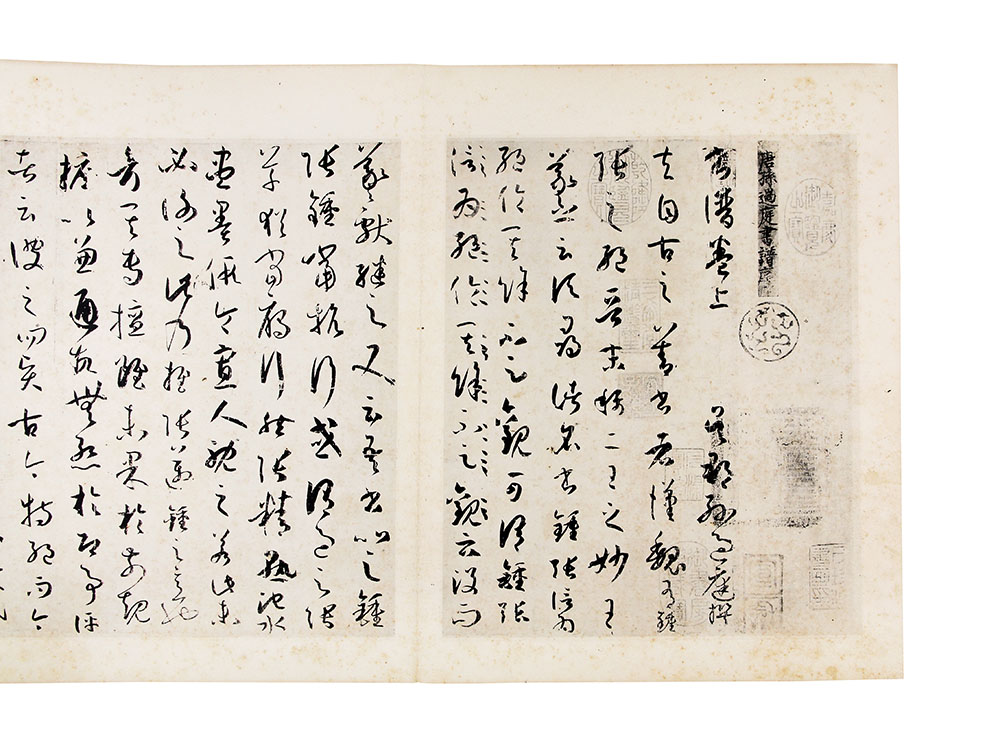 唐孫過庭書譜序
書譜卷上 吳郡孫過庭撰
夫自古之善書者漢魏有鍾
張之絕晉末稱二王之妙王
羲之云頃尋諸名書鍾張信為
絕倫其餘不足觀可謂鍾張
信為絕倫其餘不足觀云沒而
羲獻繼之又云吾書比之鍾
張鍾當抗行或謂過之張
草猶當鴈行然張精熟池水
盡墨假令寡人耽之若此未
必謝之此乃推張邁鍾之意也
考其專擅雖未果於前規
摭以兼通故無慚於即事評
者云彼之四賢古今特絕而今